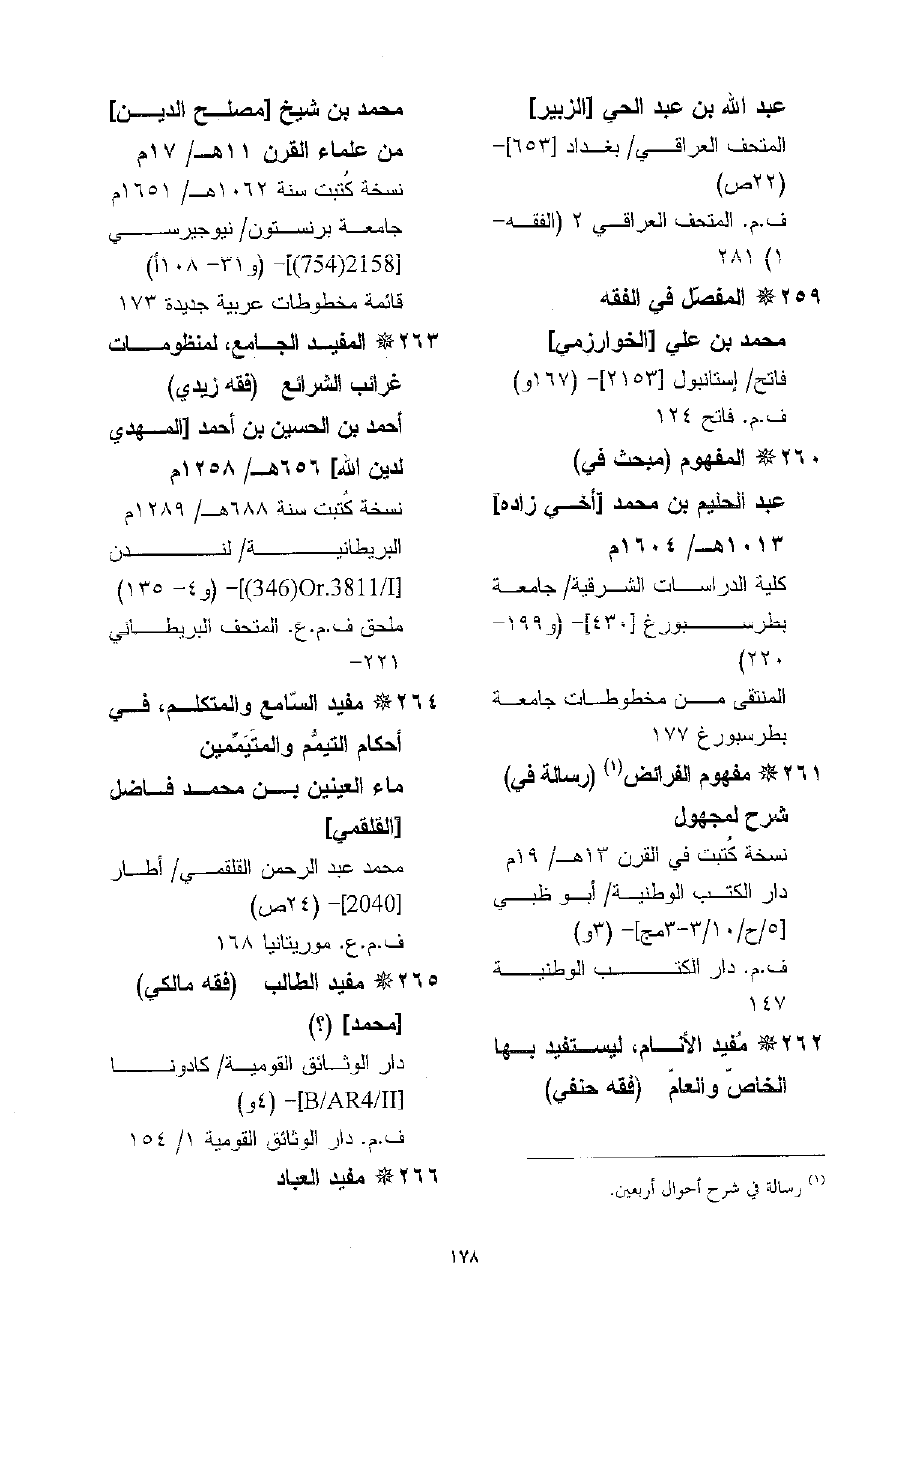 عبد الله بن عبد الحي [الزبير]
المتحف العراقي/ بغداد [٦٥٣]-
(٢٢ص)
ف.م. المتحف العراقي ٢ (الفقه-
١) ٢٨١
٢٥٩* المفصّل في الفقه
محمد بن علي [الخوارزمي]
فاتح/ إستانبول [٢١٥٣]- (١٦٧و)
ف.م. فاتح ١٢٤
٢٦٠* المفهوم (مبحث في)
عبد الحليم بن محمد [أخي زاده]
١٠١٣هـ/ ١٦٠٤م
كلية الدراسات الشرقية/ جامعة
بطرسبورغ [٤٣٠]- (و١٩٩-
٢٢٠)
المنتقى من مخطوطات جامعة
بطرسبورغ ١٧٧
٢٦١* مفهوم الفرائض(١) (رسالة في)
شرح لمجهول
نسخة كُتبت في القرن ١٣هـ/ ١٩م
دار الكتب الوطنية/ أبو ظبي
[٥/ح/٣/١٠-٣مج]- (٣و)
ف.م. دار الكتب الوطنية
١٤٧
٢٦٢* مُفيد الأنام، ليستفيد بها
الخاصّ والعامّ (فقه حنفي)
(١) رسالة في شرح أحوال أربعين.
محمد بن شيخ [مصلح الدين]
من علماء القرن ١١هـ/ ١٧م
نسخة كُتبت سنة ١٠٦٢هـ/ ١٦٥١م
جامعة برنستون/ نيوجيرسي
[2158(754)]- (و٣١- ١٠٨أ)
قائمة مخطوطات عربية جديدة ١٧٣
٢٦٣* المفيد الجامع، لمنظومات
غرائب الشرائع (فقه زيدي)
أحمد بن الحسين بن أحمد [المهدي
لدين الله] ٦٥٦هـ/ ١٢٥٨م
نسخة كُتبت سنة ٦٨٨هـ/ ١٢٨٩م
البريطانية/ لندن
[Or.3811/I(346)]- (و٤- ١٣٥)
ملحق ف.م.ع. المتحف البريطاني
٢٢١-
٢٦٤* مفيد السّامع والمتكلم، في
أحكام التيمُّم والمتَيَمِّمين
ماء العينين بن محمد فاضل
[القلقمي]
محمد عبد الرحمن القلقمي/ أطار
[2040]- (٢٤ص)
ف.م.ع. موريتانيا ١٦٨
٢٦٥* مفيد الطالب (فقه مالكي)
[محمد] (؟)
دار الوثائق القومية/ كادونا
[B/AR4/II]- (٤و)
ف.م. دار الوثائق القومية ١/ ١٥٤
٢٦٦* مفيد العباد
١٧٨